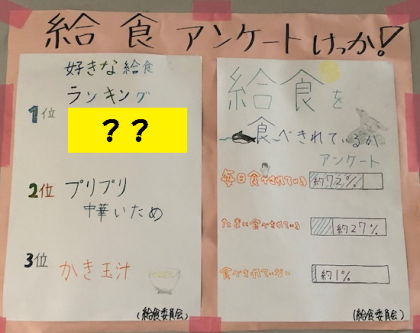 給食 アンケートけっか!
好きな給食
ランキング
1位
??
2位 プリプリ
中華いため
3位 かき玉汁
(給食委員会)
給食を
食べきれているか
アンケート
毎日食べきれている 約72%
たまに食べきれている 約27%
食べきれていない 約1%
(給食委員会)